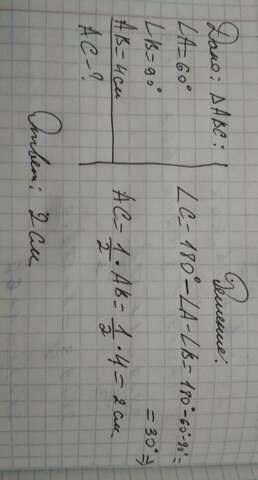 Дано: ΔABC:
∠A=60°
∠B=90°
AB=4см
AC-?
Решение:
∠C=180°-∠A-∠B=180°-60°-90°=
=30°⇒
AC=1/2·AB=1/2·4=2см
Ответ: 2 см